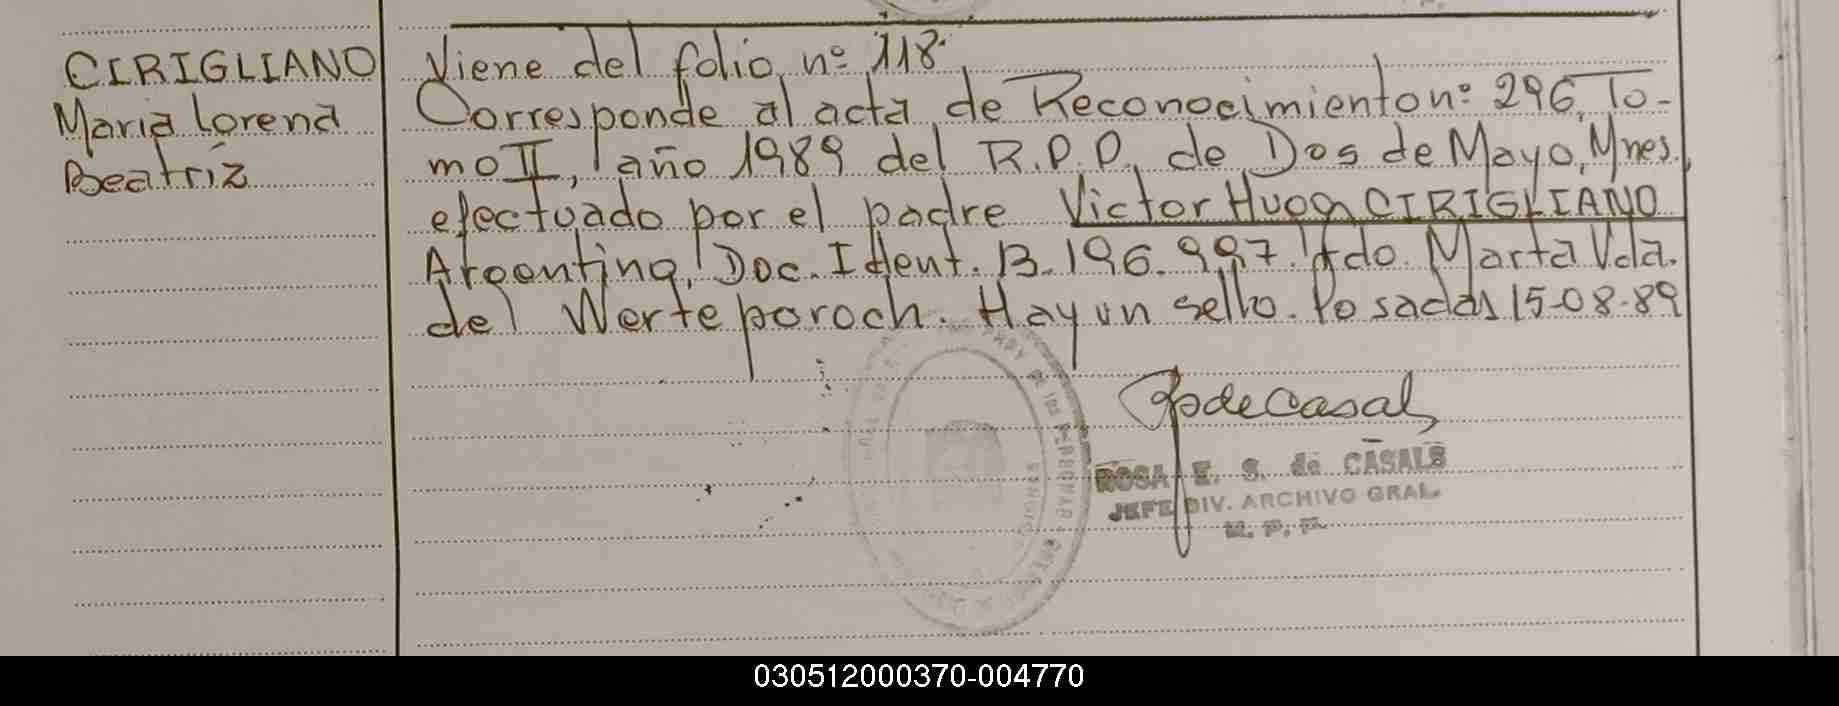 CIRIGLIANO
Maria Lorena
Beatríz
Viene del folio, nº 118.
Corresponde al acta de Reconocimiento nº 296, To-
mo II, año 1989 del R.P.P. de Dos de Mayo, Mnes.,
efectuado por el padre Victor Hugo CIRIGLIANO
Argentino, Doc. Ident. 13.196.997. Fdo. Marta Vda.
del Werteporoch. Hay un sello. Posadas 15-08-89
ROSA E. S. de CASALS
JEFE DIV. ARCHIVO GRAL.
030512000370-004770